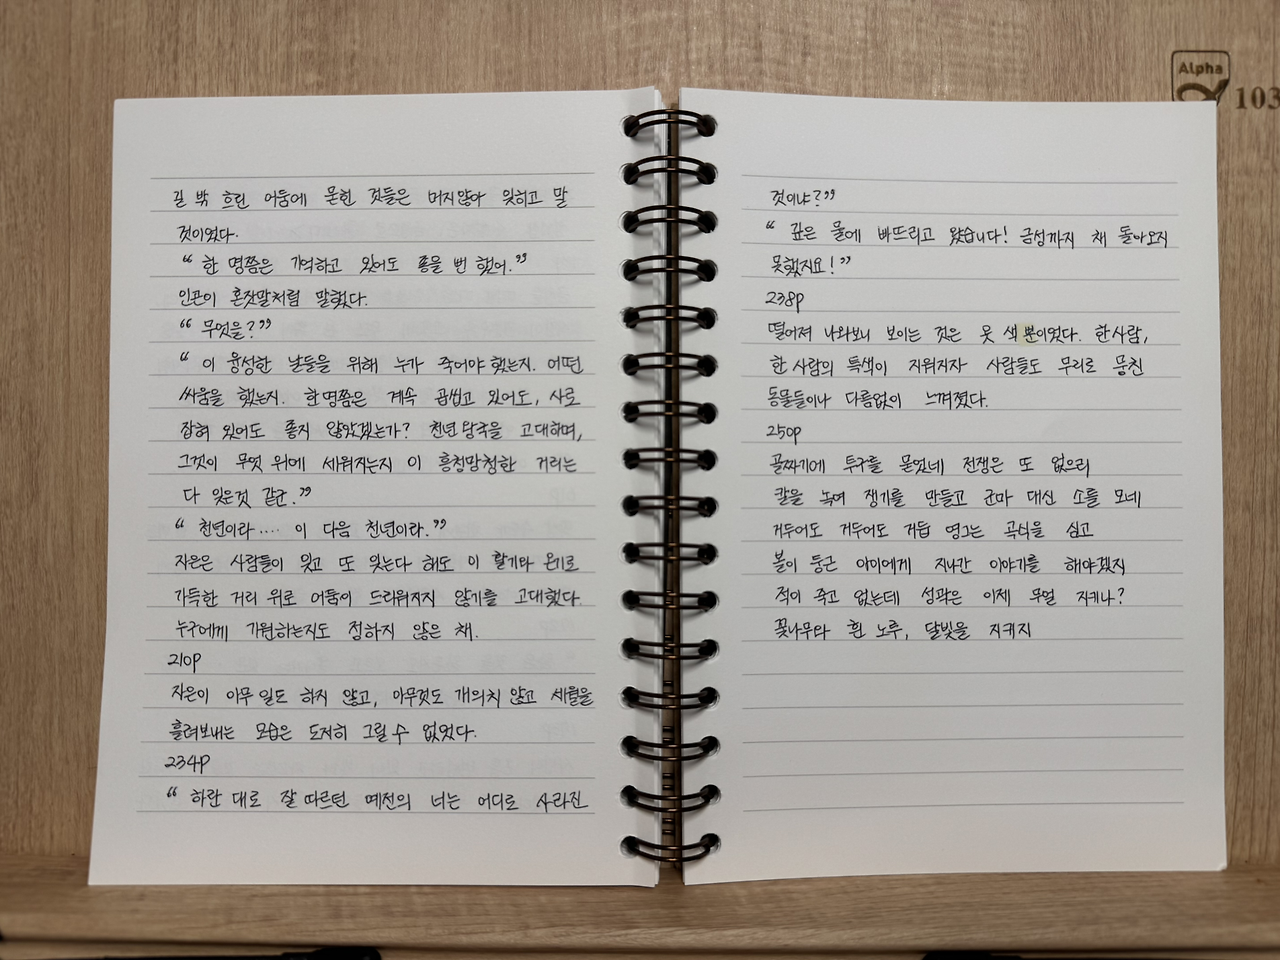 길 밖 흐린 어둠에 묻힌 것들은 머지않아 잊히고 말
것이었다.
“ 한 명쯤은 기억하고 있어도 좋을 뻔 했어.”
인곤이 혼잣말처럼 말했다.
“ 무엇을?”
“ 이 융성한 날들을 위해 누가 죽어야 했는지. 어떤
싸움을 했는지. 한명쯤은 계속 곱씹고 있어도, 사로
잡혀 있어도 좋지 않았겠는가? 천년왕국을 고대하며,
그것이 무엇 위에 세워지는지 이 흥청망청한 거리는
다 잊은것 같군.”
“ 천년이라‥‥ 이 다음 천년이라.”
자은은 사람들이 잊고 또 잊는다 해도 이 활기와 온기로
가득한 거리 위로 어둠이 드리워지지 않기를 고대했다.
누구에게 기원하는지도 정하지 않은 채.
210p
자은이 아무 일도 하지 않고, 아무것도 개의치 않고 세월을
흘려보내는 모습은 도저히 그릴 수 없었다.
234p
“ 하란 대로 잘 따르던 예전의 너는 어디로 사라진
것이냐?”
“ 깊은 물에 빠뜨리고 왔습니다! 금성까지 채 돌아오지
못했지요!”
238p
떨어져 나와보니 보이는 것은 옷 색뿐이었다. 한사람,
한 사람의 특색이 지워지자 사람들도 무리로 뭉친
동물들이나 다름없이 느껴졌다.
250p
골짜기에 투구를 묻었네 전쟁은 또 없으리
칼을 녹여 쟁기를 만들고 군마 대신 소를 모네
거두어도 거두어도 거듭 영그는 곡식을 심고
볼이 둥근 아이에게 지나간 이야기를 해야겠지
적이 죽고 없는데 성곽은 이제 무얼 지키나?
꽃나무와 흰 노루, 달빛을 지키지
Alpha
103